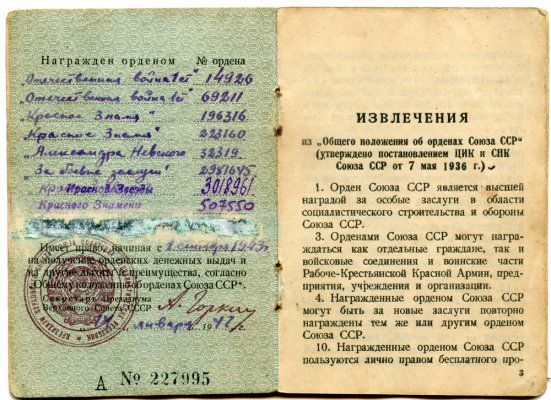 Награжден орденом № ордена
„Отечественная война 1 ст" 14926
„Отечественная война 1 ст" 69211
„Красное Знамя" 196316
„Красное Знамя" 223160
„Александра Невского 32319
„За боевые заслуги" 2981645
Красной Звезды 301896
Красного Знамени 507550
Имеет право, начиная с
на получение орденских денежных выдач и
на другие льготы и преимущества, согласно
„Общему положению об орденах Союза ССР".
Секретарь Президиума
Верховного Совета СССР А. Горкин
января 194 г.
А № 227995
ИЗВЛЕЧЕНИЯ
из „Общего положения об орденах Союза ССР"
(утверждено постановлением ЦИК и СНК
Союза ССР от 7 мая 1936 г.)
1. Орден Союза ССР является высшей
наградой за особые заслуги в области
социалистического строительства и обороны
Союза ССР.
3. Орденами Союза ССР могут награ-
ждаться как отдельные граждане, так и
войсковые соединения и воинские части
Рабоче-Крестьянской Красной Армии, пред-
приятия, учреждения и организации.
4. Награжденные орденом Союза ССР
могут быть за новые заслуги повторно
награждены тем же или другим орденом
Союза ССР.
10. Награжденные орденом Союза ССР
пользуются лично правом бесплатного про-
3